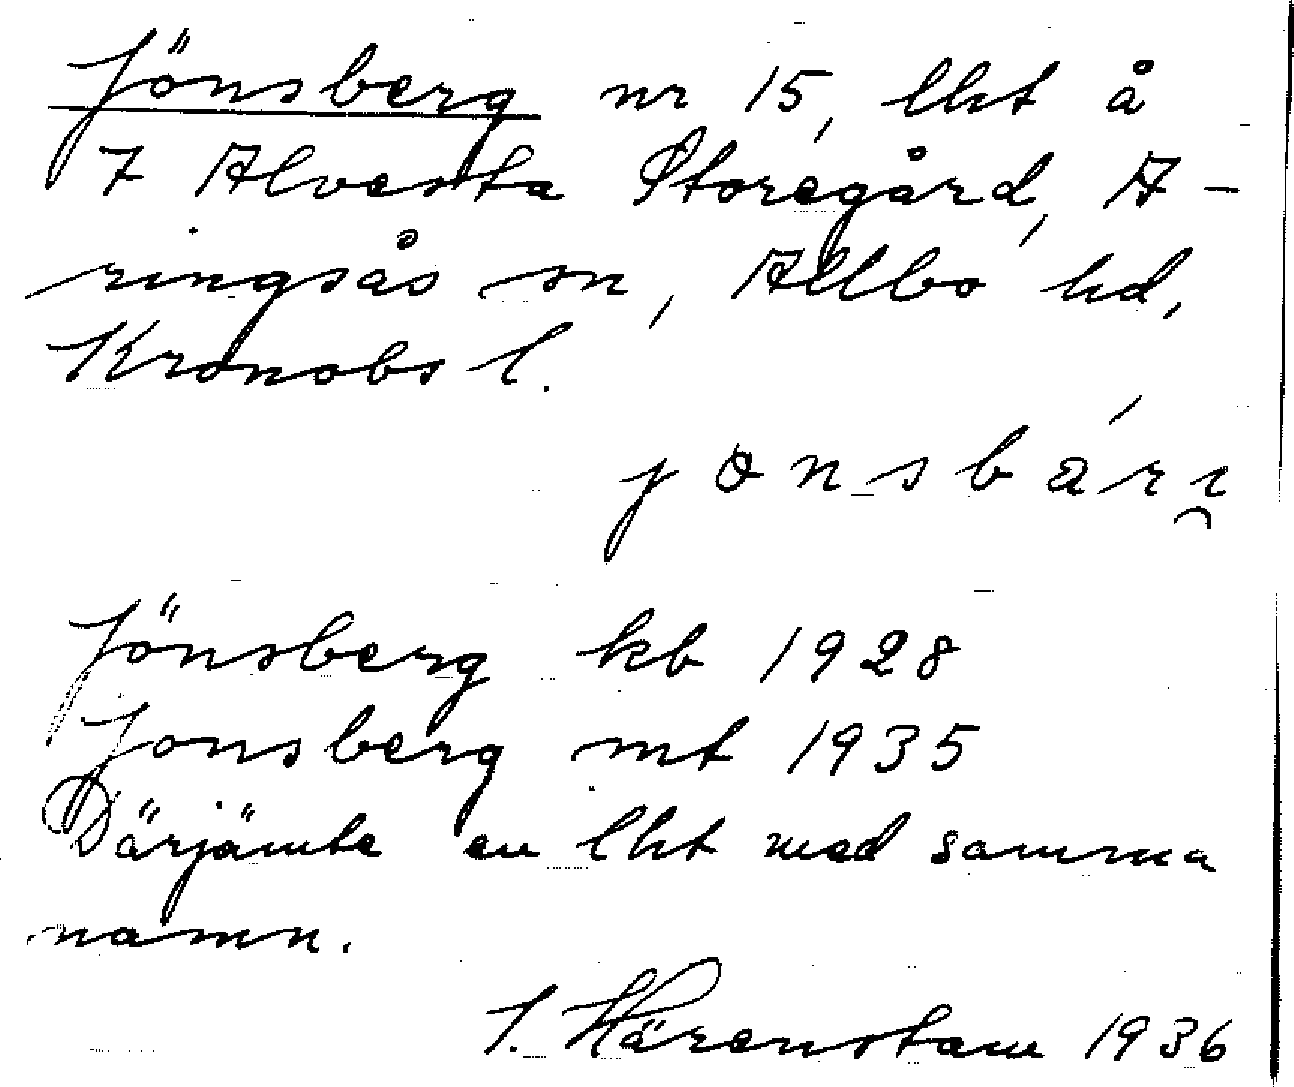 Jönsberg nr 15, lht å
7 Alvesta Storegård, A-
ringsås sn, Allbo hd,
Kronobs l.
Jönsberg kb 1928
Jonsberg mt 1935
Därjämte en lht med samma
namn.
S. Härenstam 1936